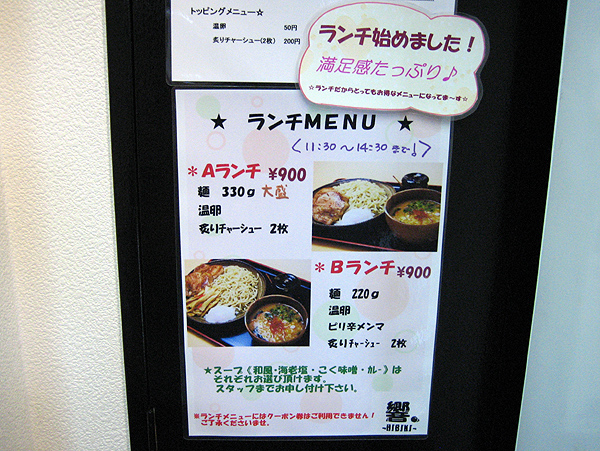 トッピングメニュー☆
温卵 50円
炙りチャーシュー(2枚) 200円
ランチ始めました！
満足感たっぷり♪
☆ランチだからとってもお得なメニューになってま〜す☆
★ ランチMENU ★
〈11:30〜14:30まで!〉
＊Aランチ ¥900
麺 330g 大盛
温卵
炙りチャーシュー 2枚
＊Bランチ ¥900
麺 220g
温卵
ピリ辛メンマ
炙りチャーシュー 2枚
★スープ《和風・海老塩・こく味噌・カレー》は
それぞれお選び頂けます。
スタッフまでお申し付け下さい。
※ランチメニューにはクーポン券はご利用できません！
ご了承くださいませ。
響。
~HIBIKI~